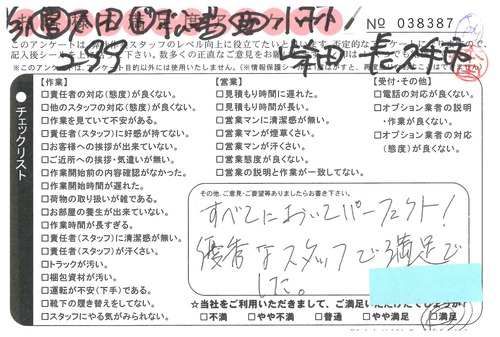 No 038387
このアンケートは
記入後シートを
チェックリスト
【作業】
□責任者の対応(態度)が良くない。
□他のスタッフの対応(態度)が良くない。
□作業を見ていて不安がある。
□責任者(スタッフ)に好感が持てない。
□お客様への挨拶が出来ていない。
□ご近所への挨拶・気遣いが無い。
□作業開始前の内容確認がなかった。
□作業開始時間が遅れた。
□荷物の取り扱いが雑である。
□お部屋の養生が出来ていない。
□作業時間が長すぎる。
□責任者(スタッフ)に清潔感が無い。
□責任者(スタッフ)が汗くさい。
□トラックが汚い。
□梱包資材が汚い。
□運転が不安(下手)である。
□靴下の履き替えをしてない。
□スタッフにやる気がみられない。
【営業】
□見積もり時間に遅れた。
□見積もり時間が長い。
□営業マンに清潔感が無い。
□営業マンが煙草くさい。
□営業マンが汗くさい。
□営業態度が良くない。
□営業の説明と作業が一致してない。
【受付・その他】
□電話の対応が良くない。
□オプション業者の説明
・作業が良くない。
□オプション業者の対応
(態度)が良くない。
その他、ご意見・ご要望等ありましたらお書き下さい。
すべてにおいてパーフェクト!
優秀なスタッフで満足で
した。
☆当社をご利用いただきまして、ご満足いただけたでしょうか?
□不満 □やや不満 □普通 □やや満足 □満足